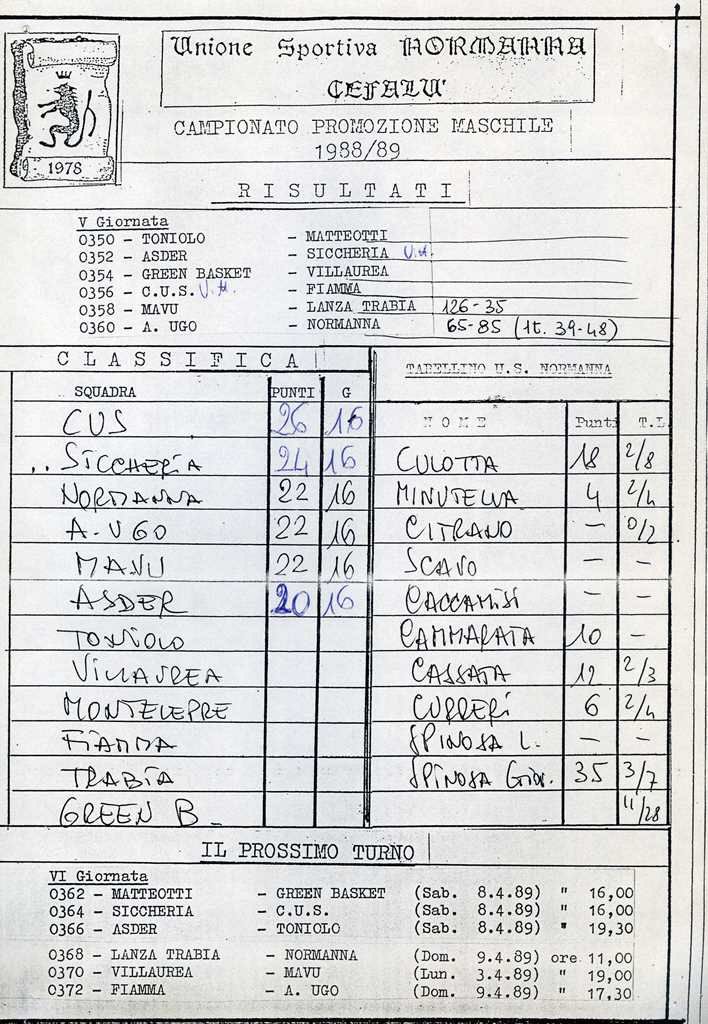 Unione Sportiva NORMANNA
CEFALU'
1978
CAMPIONATO PROMOZIONE MASCHILE
1988/89
RISULTATI
V Giornata
0350 - TONIOLO - MATTEOTTI
0352 - ASDER - SICCHERIA V.H.
0354 - GREEN BASKET - VILLAUREA
0356 - C.U.S. V.H. - FIAMMA
0358 - MAVU - LANZA TRABIA 126-35
0360 - A. UGO - NORMANNA 65-85 (1t. 39-48)
CLASSIFICA
SQUADRA PUNTI G
CUS 26 16
SICCHERIA 24 16
NORMANNA 22 16
A. UGO 22 16
MAVU 22 16
ASDER 20 16
TONIOLO
VILLAUREA
MONTELEPRE
FIAMMA
TRABIA
GREEN B.
TABELLINO U.S. NORMANNA
NOME Punti T.L
CULOTTA 18 2/8
MINUTELLA 4 2/4
CITRANO - 0/2
SCAVO - -
CACCAMISI - -
CAMMARATA 10 -
CASSATA 12 2/3
CURRERI 6 2/4
SPINOSA L. - -
SPINOSA Giov. 35 3/7
11/28
IL PROSSIMO TURNO
VI Giornata
0362 - MATTEOTTI - GREEN BASKET (Sab. 8.4.89) " 16,00
0364 - SICCHERIA - C.U.S. (Sab. 8.4.89) " 16,00
0366 - ASDER - TONIOLO (Sab. 8.4.89) " 19,30
0368 - LANZA TRABIA - NORMANNA (Dom. 9.4.89) ore 11,00
0370 - VILLAUREA - MAVU (Lun. 3.4.89) " 19,00
0372 - FIAMMA - A. UGO (Dom. 9.4.89) " 17,30